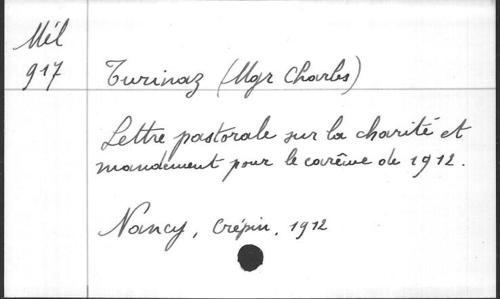 Mél
917
Turinaz (Mgr Charles)
Lettre pastorale sur la charité et
mandement pour le carême de 1912.
Nancy, Crépin, 1912